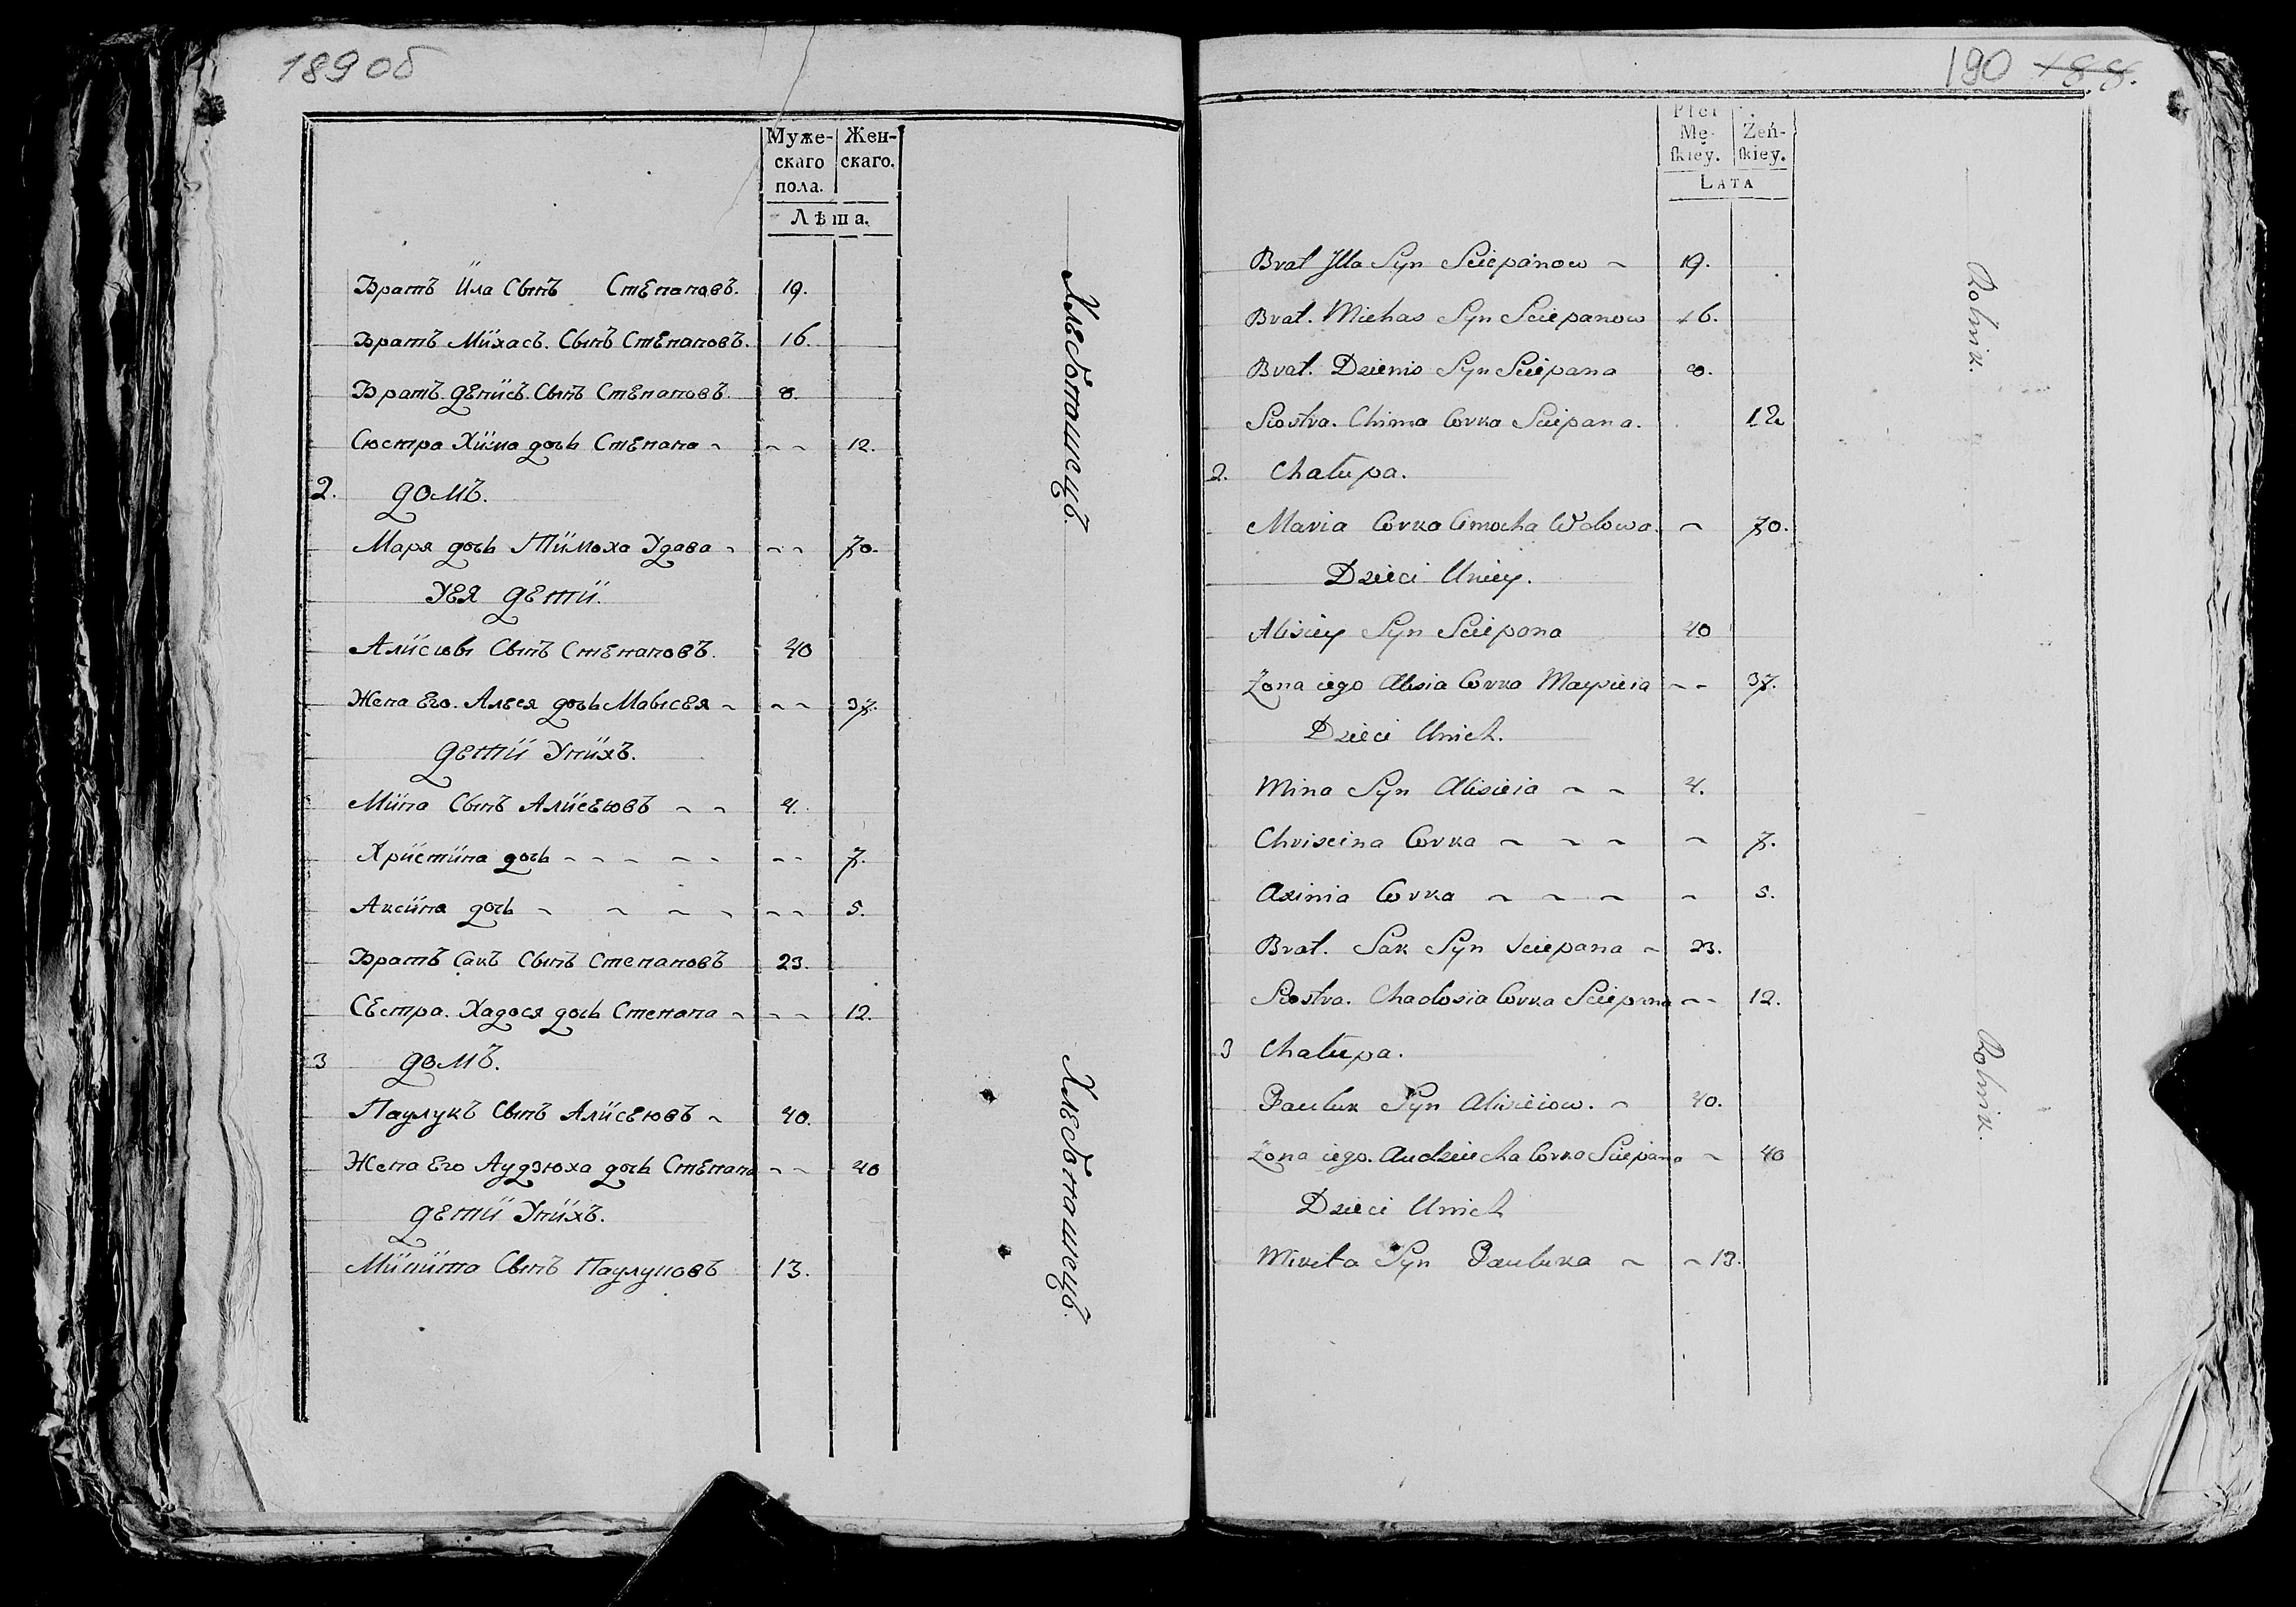 189 об
Муже-
скаго
пола.
Жен-
скаго.
Лѣта.
Братъ Ила Сынъ Степановъ. 19.
Братъ Михась. Сынъ Степановъ. 16.
Братъ. Денисъ. Сынъ Степановъ. 8.
Сюстра Хима дочь Степана ~ ~ ~ 12.
2. домъ.
Маря дочь Тимоха Удава ~ ~ ~ 70.
Уея дети.
Алисювы Сынъ Степановъ. 40
Жена Его. Алеся дочь Мавысея ~ ~ ~ 37.
дети Унихъ.
Мина Сынъ Алисеювъ ~ ~ 4.
Христина дочь ~ ~ ~ ~ ~ ~ ~ 7.
Аксиня дочь ~ ~ ~ ~ ~ ~ 5.
Братъ Сакъ Сынъ Степановъ 23.
Сестра. Хадося дочь Степана ~ ~ ~ 12.
3 домъ.
Паулукъ Сынъ Алисеювъ ~ 40.
Жена Его Аудзюха дочь Степана ~ ~ 40
дети Унихъ.
Микита Сынъ Паулуковъ 13.
Хлебопашецъ.
Хлебопашецъ.
190 188.
Płci
Mę-
ſkiey.
Żeń-
ſkiey.
LATA
Brat Jlla Syn Sciepanow ~ 19.
Brat. Michas Syn Sciepanow 16.
Brat. Dzienis Syn Sciepana 8.
Siostra. Chima Corka Sciepana. 12
2. Chałupa.
Maria Corka Cimocha Wdowa. ~ 70.
Dzieci Uniey.
Alisiey Syn Sciepana 40
Żona iego Alesia Corka Maysieia ~ ~ 37.
Dzieci Unich.
Mina Syn Alisieia ~ ~ 4.
Chriscina Corka ~ ~ ~ ~ 7.
Axinia Corka ~ ~ ~ ~ 5.
Brat. Sak Syn Sciepana ~ 23.
Siostra. Chadosia Corka Sciepana ~ ~ 12.
3 Chałupa.
Pauluk Syn Alisieiow. ~ 40.
Żona iego. Audziucha Corka Sciepana ~ 40
Dzieci Unich
Mikita Syn Pauluka ~ ~ 13.
Rolnik.
Rolnik.